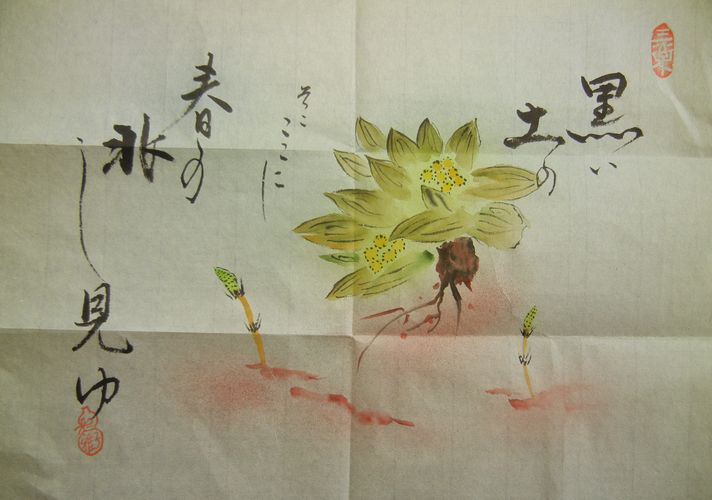 黒い
土の
そこ
ここに
春の
兆
し見ゆ